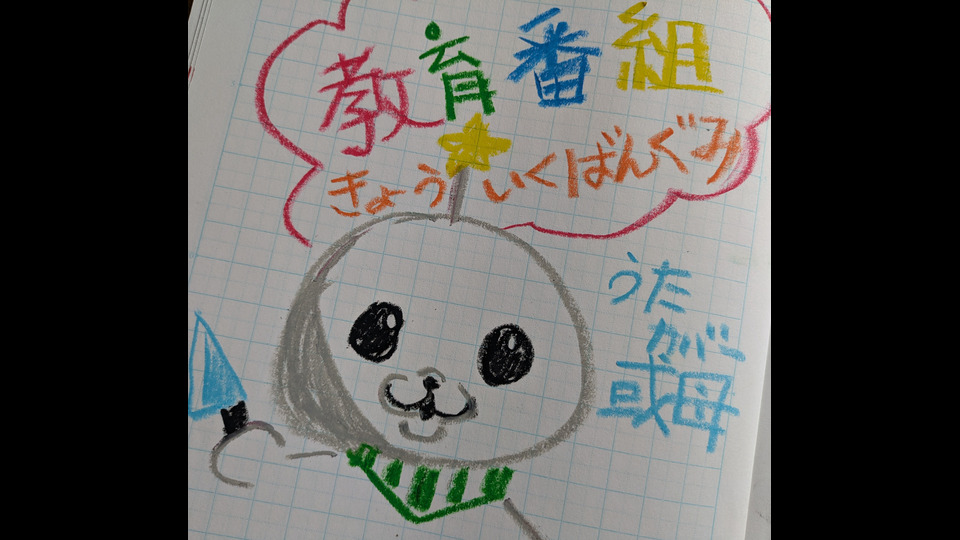 教育番組
きょういくばんぐみ
うた
カバー
或母